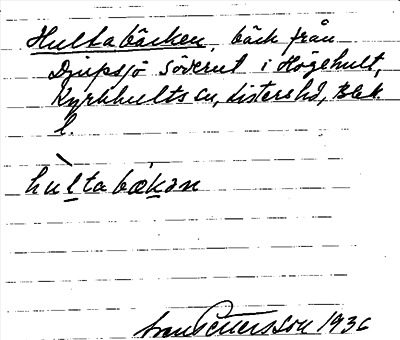 Hultabäcken, bäck från
Djupsjö söderut i Högehult,
Kyrkhults sn, Listers hd, Blek.
l.
hùltabækən
Pettersson 1936